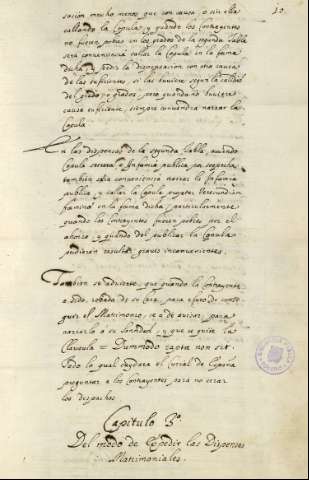 10
sacion mucho menos que con causa, o sin ella
callando la Copula; y quando los Contrayentes
no fueren pobres en los grados de la segunda tabla
sera conveniencia callar la Copula en la forma
dicha, y pedir la dispensacion con otra causa
de las suficientes, si las huviere segun la calidad
del grado, o grados, pero quando no huviere
causa suficiente, siempre convendra narrar la
Copula
En las dispensas de la segunda tabla, aviendo
Copula secreta e Infamia publica por sospecha
tambien sera conveniencia narrar la Infamia
publica, y callar la Copula,
en la forma dicha, particularmente
quando los Contrayentes fuesen pobres por el
ahorro, y quando del publicar la Copula
pudieran resultar graves inconvenientes.
Tambien se advierte, que quando la Contrayente
a sido robada de su Casa, para efecto de conse-
guir el Matrimonio, se a de avisar, para
narrarlo a su Santidad, y que se quite la
Clausula = Dummodo rapta non sit.
Todo lo qual el Curial de España
preguntar a los Contrayentes, para no errar
los despachos
Capitulo 3º
Del modo de Expedir las Dispensas
Matrimoniales.